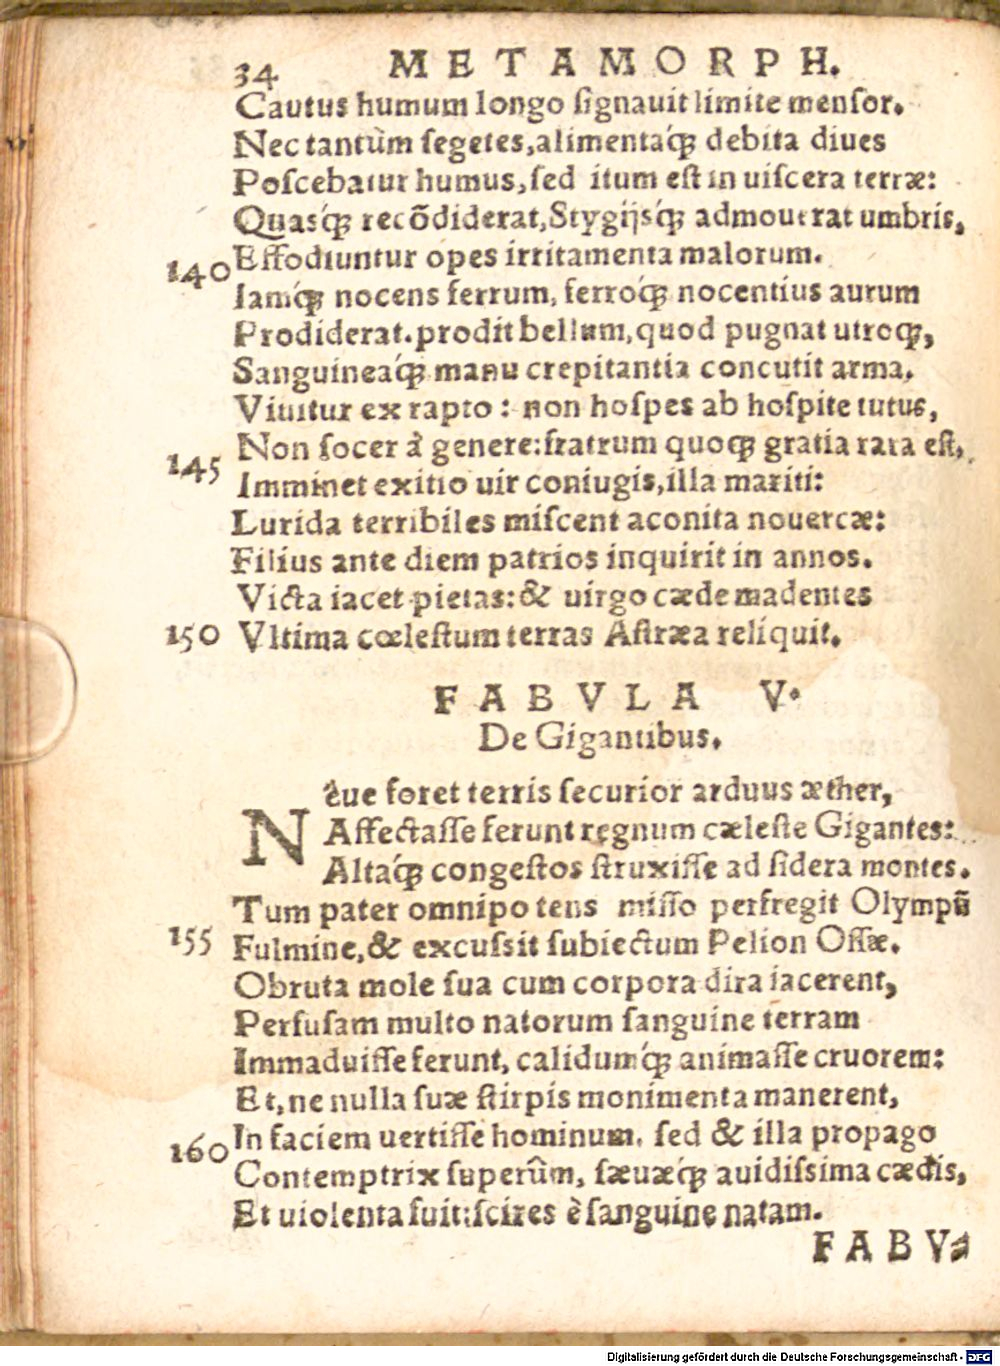 34 METAMORPH.
Cautus humum longo ſignauit limite menſor.
Nec tantùm ſegetes, alimentaq́ꝫ debita diues
Poſcebatur humus, ſed itum eſt in uiſcera terræ:
Quasq́ꝫ recõdiderat, Stygijsq́ꝫ admouerat umbris,
140 Effodiuntur opes irritamenta malorum.
Iamq́ꝫ nocens ferrum, ferroq́ꝫ nocentius aurum
Prodiderat. prodit bellum, quod pugnat utroqꝫ,
Sanguineaq́ꝫ manu crepitantia concutit arma.
Viuitur ex rapto: non hoſpes ab hoſpite tutus,
145 Non ſocer à genere: fratrum quoqꝫ gratia rara eſt.
Imminet exitio uir coniugis, illa mariti:
Lurida terribiles miſcent aconita nouercæ:
Filius ante diem patrios inquirit in annos.
Victa iacet pietas: & uirgo cæde madentes
150 Vltima cœleſtum terras Aſtræa reliquit.
FABVLA V.
De Gigantibus.
Nève foret terris ſecurior arduus æther,
Affectaſſe ferunt regnum cæleſte Gigantes:
Altaq́ꝫ congeſtos ſtruxiſſe ad ſidera montes.
Tum pater omnipotens miſſo perfregit Olympũ
155 Fulmine, & excuſsit ſubiectum Pelion Oſſæ.
Obruta mole ſua cum corpora dira iacerent,
Perfuſam multo natorum ſanguine terram
Immaduiſſe ferunt, calidumq́ꝫ animaſſe cruorem:
Et, ne nulla ſuæ ſtirpis monimenta manerent,
160 In faciem uertiſſe hominum. ſed & illa propago
Contemptrix ſuperûm, ſæuæq́ꝫ auidiſsima cædis,
Et uiolenta fuit: ſcires è ſanguine natam.
FABV-
Digitalisierung gefördert durch die Deutsche Forschungsgemeinschaft - DFG